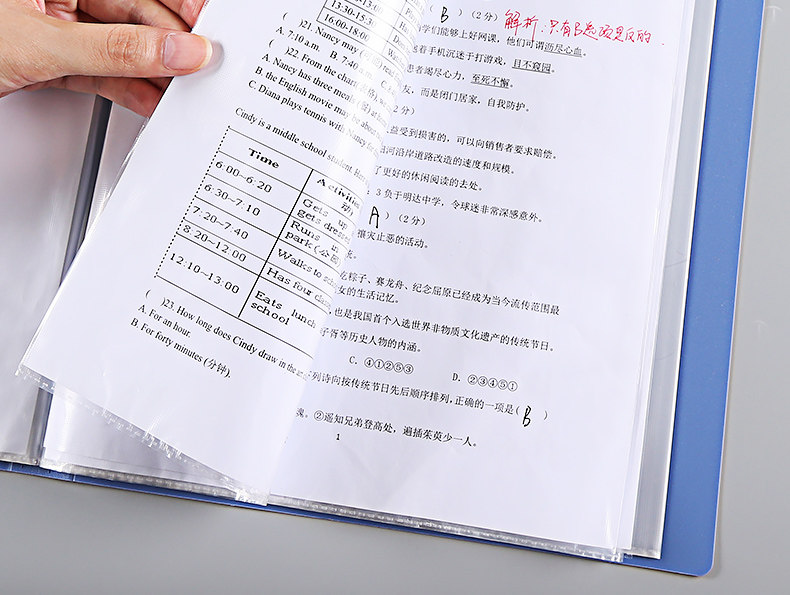 13:30-15:30
16:00-18:00
( )21. Nancy may
A. 7:10 a.m. B. 7:40
( )22. From the chart(
A. Nancy has three meals (餐) at
B. the English movie may be about
C. Diana plays tennis with Nancy
Cindy is a middle school student.
Time
Activities
6:00~6:20
Gets up
gets dressed
6:30~7:10
Runs in
park(公园
7:20~7:40
Walks to scho
8:20~12:00
Has four class
12:10~13:00
Eats lunch
school
( )23. How long does Cindy draw in the
A. For an hour.
B. For forty minutes (分钟).
( B )(2分) 解析:只有B选项是反的
学们能够上好网课,他们可谓沥尽心血。
着手机沉迷于打游戏,目不窥园。
患者竭尽心力,至死不懈。
友,而是闭门居家,自我防护。
2分)
益受到损害的,可以向销售者要求赔偿。
河沿岸道路改造的速度和规模。
了更好的休闲阅读的去处。
:3负于明达中学,令球迷非常深感意外。
A )(2分)
禳灾止恶的活动。
吃粽子、赛龙舟、纪念屈原已经成为当今流传范围最
女的生活记忆。
也是我国首个入选世界非物质文化遗产的传统节日。
子胥等历史人物的内涵。
C. ④①②⑤③ D. ②③④⑤①
列诗句按传统节日先后顺序排列,正确的一项是( B )
魂。②遥知兄弟登高处,遍插茱萸少一人。
1